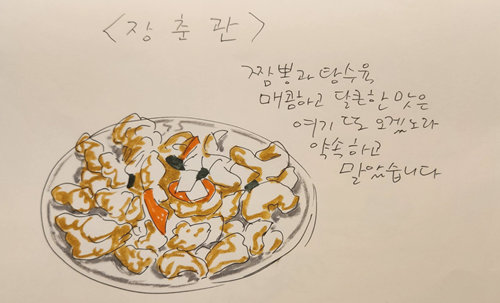 <장춘관>
짬뽕과 탕수육
매콤하고 달큰한 맛은
여기 또 오겠노라
약속하고
말았습니다